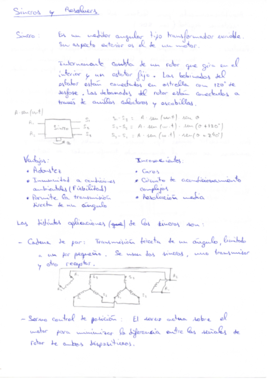 Síncros y Resolvers
Síncro: Es un medidor angular tipo transformador variable.
Su aspecto exterior es el de un motor.
Internamente consta de un rotor que gira en el
interior y un estator fijo. Los bobinados del
estator están conectados en estrella con 120° de
desfase. Los bobinados del rotor están conectados a
través de anillos colectores y escobillas.
A sen(wt)
R₁
Síncro
S₁
S₂
S₃
Ventajas:
Inconvenientes:
• Robustos
• Caros
• Inmunidad a cambios
ambientales (Fiabilidad)
• Circuito de acondicionamiento
complejos
• Permite la transmisión
directa de un ángulo
• Resolución media
Las distintas aplicaciones de los síncros son:
- Cadena de par: Transmisión directa de un ángulo, limitada
a un par pequeño. Se usan dos síncros, uno transmisor
y otro receptor.
- Servo control de posición. El servo actúa sobre el
motor para minimizar la diferencia entre las señales de
rotor de ambos dispositivos.